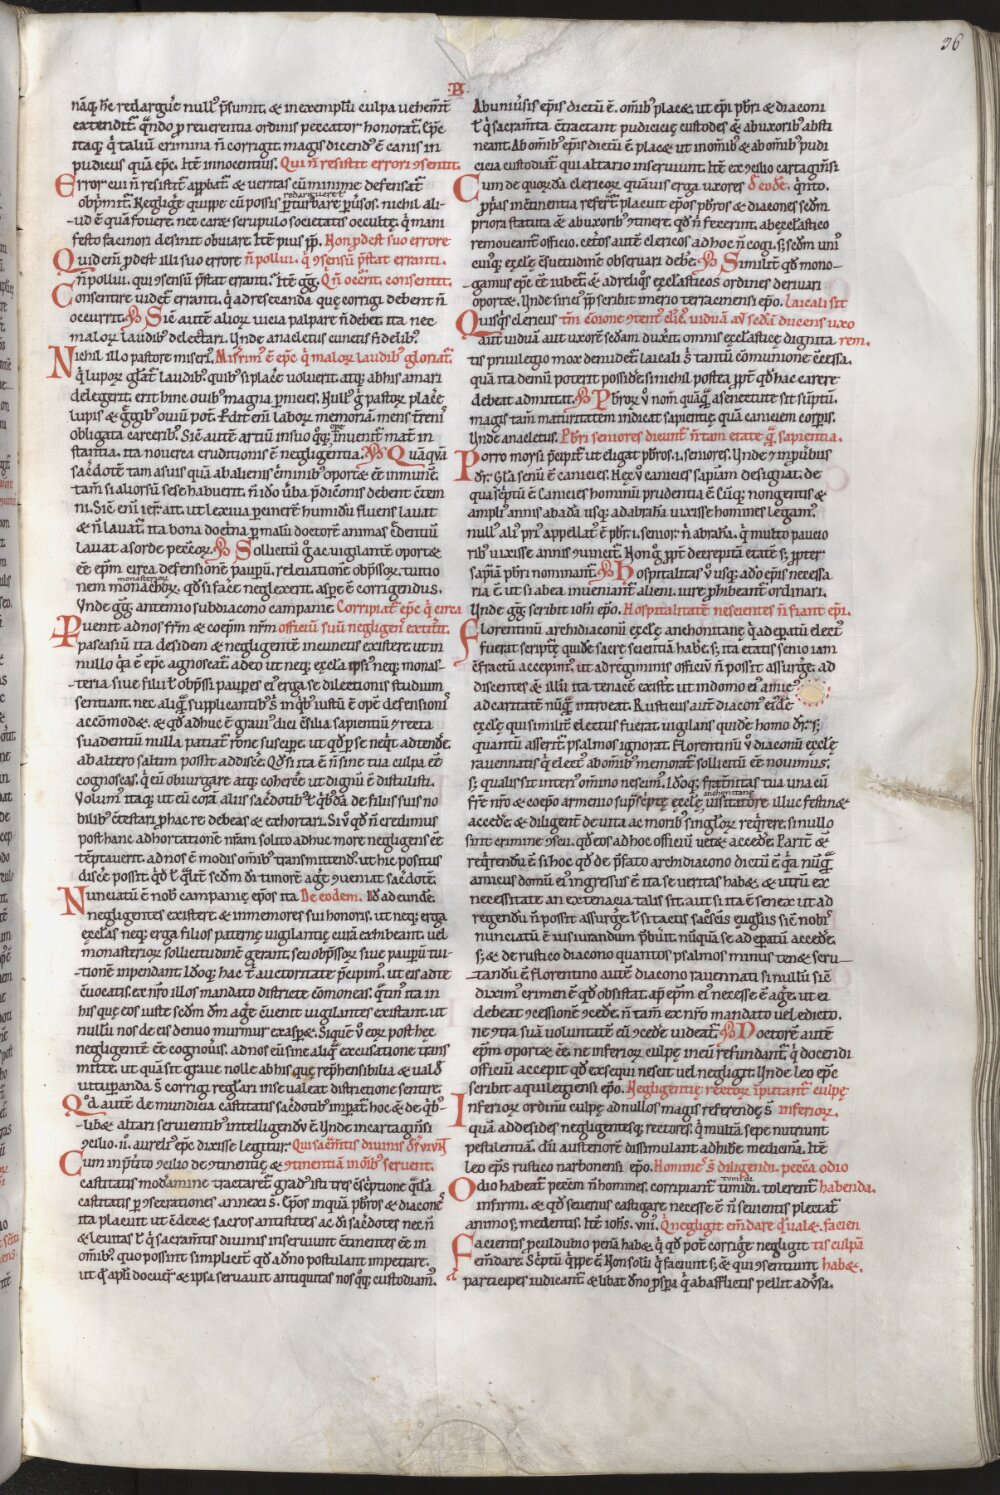 36
.B.
namq; he redargu̓e null' p̄sumit. & in exempl̄u culpa uehem̄t
extendit̄. q̄ndo p reuerentia ordinis peccator honorat̄. Ep̄c
itaq; q̓ taliū crimina n̄ corrigit. magis dicend' ē canis in
pudicus quā ep̄c. Itē innocentius. Qui n̄ resistit errori ɔsentit.
Error cui n̄ resistit̄ app̄bat̄. & ueritas cū minime defensat̄
redarguere ł
obp̄mit̄. Negliḡe quippe cū possis p̄turbare p̄uersos. nichil ali-
ud ē quā fouere. nec caret scrupulo societatis occultę. q̓ mani
festo facinori desinit obuiare. Itē pius pp̄. Non p̄dest suo errore
Quid eni p̄dest illi suo errore n̄ pollui. q̓ ɔsensū p̄stat erranti.
n̄ pollui. qui ɔsensū p̄stat erranti. Itē gḡ. Q̓ n̄ occ̄rit. consentit.
Consentire uidet̄ erranti. q̓ ad resecanda que corrigi debent n̄
occurrit. Sic autē alioꝝ uicia palpare n̄ debet. ita nec
maloꝝ laudib' delectari. Unde anacletus cunctis fidelib'.
Nichil illo pastore miseri'. Miserrim' ē ep̄c q̓ maloꝝ laudib' gloriat̄.
q̓ lupoꝝ gl̄at̄ laudib'. quib' si plac̄e uoluerit. atq; ab his amari
delegerit. erit hinc ouib' magna p̄nicies. Null' q̓ pastoꝝ plac̄e
lupis & ḡgib' ouiū pot̄. P̄dit eni laboꝝ memoriā. mens t̄reni
ope
obligata carcerib'. Sic autē artiū in suo qq; inuenit̄ mat̄ in
stantia. ita nouerca eruditionis ē negligentia. Quāquā
sac̓dotē tam a suis quā ab alienis c̓minib' oporteat c̄e inmunē.
tam̄ si aliorsū sese habuerit. n̄ ido u̓ba p̄dic̄onis debent c̄tem
ni. Sic eni ier. ait. ut lexiua p cinerē humidū fluens lauat
& n̄ lauat̄. ita bona doct̄na p malū doctorē animas c̓dentiū
lauat a sorde pecc̄oꝝ. Sollicitū q̓ ac uigilantē oporteat
c̄e ep̄m circa defensionē paupū. releuationē obp̄ssoꝝ. tuitio
monasterioꝝ
nem monachoꝝ. qd̄ si fac̓e neglexerit. asp̄e ē corrigendus.
Unde gḡ. antemio subdiacono campanie. Corripiat̄ ep̄c q̓ circa
Puenit ad nos fr̄m & coep̄m nr̄m officiū suū negligens extit̄it.
pascasiū ita desidem & negligentē in cunctis existere. ut in
nullo q̓a ē ep̄c agnoscat̄. adeo ut neq; ęccl̄a ipsi' neq; monas-
teria siue filii ł obp̄ssi paupes ei' erga se dilectionis studium
sentiant. nec aliq̄ supplicantib' s̄ in q̓b' iustū ē opē defensioni'
accōmodet. & qd̄ adhuc ē graui' dici ɔsilia sapientiū & recta
suadentiū nulla patiat̄ r̄one suscipe. ut qd̄ p se neq̓t adtend̓e.
ab altero saltim possit addisc̓e. Qd̄ si ita ē n̄ sine tua culpa c̄e
cognoscas. q̓ eū obiurgare atq; cohērc̓e ut dignū ē distulisti.
Volum' itaq; ut eū corā aliis sac̓dotib' ł q̓bdā de filiis suis no
bilib' c̄testari p hac re debeas & exhortari. Si u̓o qd̄ n̄ credimus
post hanc adhortationē nr̄am solito adhuc more negligens c̄e
tēptauerit. ad nos ē modis om̄ib' transmittend'. ut hic positus
disc̓e possit. q̓d ł q̓lit̄ sc̄dm dī timorē aḡe ɔueniat sac̓dotē.
Nunciatū ē nob̄ campanię ep̄os ita De eodem. Id̄ ad eundē.
negligentes existere. & inmemores sui honoris. ut neq; erga
ęccl̄as neq; erga filios paternę uigilantię curā exhibeant. uel
monasterioꝝ sollicitudinē gerant. seu obp̄ssoꝝ siue paupū tui-
tionē inpendant. Idoq; hac t̄ auctoritate p̄cipim'. ut eis adte
c̄uocatis. ex nr̄o illos mandato districte c̄moneas. q̓tin' ita in
his que eos iuste sc̄dm dm̄ aḡe c̄uenit uigilantes existant. ut
nullū nos de eis denuo murmur exaspet. Si que u̓ eoꝝ post hęc
negligentē c̄e cognou̓is. ad nos eū sine aliq̄ excusatione trans
mitte. ut quā sit graue nolle ab his que rep̄hensibilia & ualde
uitupanda s̄ corrigi regl̄ari in se ualeat districtione sentire.
Qd̄ autē de mundicia castitatis sac̓dotib' impat̄. hoc & de q̓b'-
libet altari seruientib' intelligend' ē. Unde in cartaginēsi
ɔcilio .ii. aureli' ep̄c dixisse legitur. Qui sac̄mtis diuinis dēs'uiunt
Cum in p̄t̓ito ɔcilio de ɔtinentię & ɔtinentiā in om̄ib' seruent.
castitatis moderamine tractaret̄. grad' isti tres c̄s̓ptione q̄dā
castitatis p ɔsecrationes annexi s̄. Ep̄os inquā p̄b̄ros & diacōe
ita placuit ut c̄decet sacros antistites ac dī sac̓dotes nec n̄
& leuitas ł q̓ sacram̄tis diuinis inseruiunt c̄tinentes c̄e in
om̄ib'. quo possint simplicit̄ qd̄ a dn̄o postulant impetrare.
ut q̄ ap̄li docuer̄ & ipsa seruauit antiquitas nos qq; custodiam'.
Ab uniu̓sis ep̄is dictū ē. om̄ib' placet. ut ep̄i p̄b̄ri & diaconi
ł q̓ sacram̄ta c̄tractant pudicicię custodes & ab uxorib' absti
neant. Ab om̄ib' ep̄is dictū ē placet ut in om̄ib' & ab om̄ib' pudi
cicia custodiat̄ qui altario inseruiunt. Itē ex ɔcilio cartaginēsi
Cum de quorūdā clericoꝝ quāuis erga uxores De eodē. q̓nto.
p̄p̓as incōtinentia refert̄. placuit ep̄os p̄b̄ros & diacones sc̄dm
priora statuta & ab uxorib' ɔtinere. qd̄ n̄ fecerint. ab ęccl̄astico
remoueant̄ officio. cet̄os autē clericos ad hoc n̄ cogi. s; sc̄dm uni'
cuiq; ęccl̄ę c̄suetudinē obseruari debet. Similit̄ qd̄ mono-
gamus ep̄c c̄e iubet̄. & ad reliq̓s ęccl̄asticos ordines deriuari
oportet. Unde sirici' pp̄ scribit imerio terraconensi ep̄o. Laicali sit
Quisq̓s clericus tm̄ c̄moione ɔtent' cl̄ic'. uiduā aut sc̄dā ducens uxo
aut uiduā aut uxorē sc̄dam duxit. omnis ęccl̄asticę dignita rem.
tis priuilegio mox denudet̄. laicali s̄ tantū cōmunione c̄cessa.
quā ita demū poterit possid̓e. si nichil postea p̄pt̄ qd̄ hac carere
debeat admittat. P̄b̄roꝝ u̓ nom̄. quāq̄ a senectute sit sūptū.
magis tam̄ maturitatem indicat sapientię. quā caniciem corpis.
Unde anacletus. P̄b̄ri seniores dicunt̄ n̄ tam etate q̄ sapientia.
Porro moysi p̄cipit̄ ut eligat p̄b̄ros. i. seniores. Unde & in puib'
dr̄. Gl̄a senū ē canicies. Hęc u̓ canicies sapiām designat. de
qua sc̓ptū ē Canicies hominū prudentia ē. Cūq; nongentis &
ampli' annis ab adā usq; ad abrahā uixisse homines legam'.
null' ali' pri' appellat' ē p̄b̄r. i. senior. n̄ abrahā. q̓ multo paucio
rib' uixisse annis ɔuincit̄. Non q̓ p̄pt̄ decrepitā etatē s; p̄pter
sapiā p̄b̄ri nominant̄. Hospitalitas u̓ usq; ado ep̄is necessa
ria ē. ut si ab ea inueniant̄ alieni. iure p̄hibeant̄ ordinari.
Unde gḡ scribit ioh̄i ep̄o. Hospitalitatē nescientes n̄ fiant ep̄i.
Florentinū archidiaconū ęccl̄ę anchonitanę q̓ ad ep̄atū elect'
fuerat scriptę quidē sacrę scientiā habet. s; ita etatis senio iam
c̄fractū accepim'. ut ad regiminis officiū n̄ possit assurḡe. ad
dicentes & illū ita tenacē exist̓e. ut in domo ei' amic'
ad caritatē nūq̄ introeat. Rusticus autē diacon' ei'dē
ęccl̄ę qui similit̄ electus fuerat. uigilans quidē homo dr̄. s;
quantū asserit̄ psalmos ignorat. Florentinū u̓ diaconū ęccl̄ę
rauennatis q̓ elect' ab om̄ib' memorat̄ sollicitū c̄e nouimus.
s; qualis sit interi' om̄ino nescim'. Idoq; frat̄nitas tua una cū
anchonitanę
fr̄e nr̄o & coep̄o armenio sup̄sc̓ptę ęccl̄ę uisitatore illuc festinet
acced̓e. & diligent̄ de uita ac morib' singl̄oꝝ req̓rere. si nullo
sint crimine ɔscii. qd̄ eos ad hoc officiū uetet acced̓e. Parit̄ &
req̓rendū ē si hoc qd̄ de p̄fato archidiacono dictū ē. q̓a nūq̄
amicus domū ei' ingressus ē ita se ueritas habet. & utrū ex
necessitate an ex tenacia talis sit. aut si ita ē senex ut ad
regendū n̄ possit assurḡe. ł si tactis sac̓scis euḡliis sic nob̄
nunciatū ē iusiurandum p̄buit. nūquā se ad ep̄atū acced̓e.
s; & de rustico diacono quantos psalmos minus teneat seru-
tandū ē. Florentino autē diacono rauennati si nullū sic
dixim' crimen ē qd̄ obsistat. ap̄ ep̄m ei' necesse ē aḡe. ut ei
debeat ɔcessionē ɔced̓e. n̄ tam̄ ex nr̄o mandato uel edicto.
ne ɔtra suā uoluntatē eū ɔced̓e uideat̄. Doctorē autē
ep̄m oportet c̄e. ne inferioꝝ culpę in eū refundant̄. q̓ docendi
officiū accepit qd̄ exsequi nescit uel negligit. Unde leo ep̄c
scribit aquilegiensi ep̄o. Negligentię rectoꝝ īputant̄ culpę
Inferioꝝ ordinū culpę ad nullos magis referendę s̄ inferioꝝ.
quā ad desides negligentesq; rectores. q̓ multā sepe nutriunt
pestilentiā. dū austeriorē dissimulant adhib̓e medicinā. Itē
leo ep̄s rustico narbonensi ep̄o. Homines s̄ diligendi. peccata odio
Odio habeat̄ pecc̄m n̄ homines. corripiant̄ tumidi. tolerent̄ habenda.
tumidi
infirmi. & qd̄ seuerius castigare necesse ē n̄ seuientis plectat̄
animo s; medentis. Itē ioh̄s. viii. Q̓ negligit em̄dare q̓ ualet. facien
Facientis p̄culdubio penā habet. q̓ qd̄ pot̄ corriḡe negligit tis culpā
em̄dare. Sc̓ptū q̓ppe ē. Non solū q̓ faciunt s; & qui ɔsentiunt habet.
participes iudicant̄. & libat dn̄o p̄spa q̓ ab afflictis pellit adu̓sa.